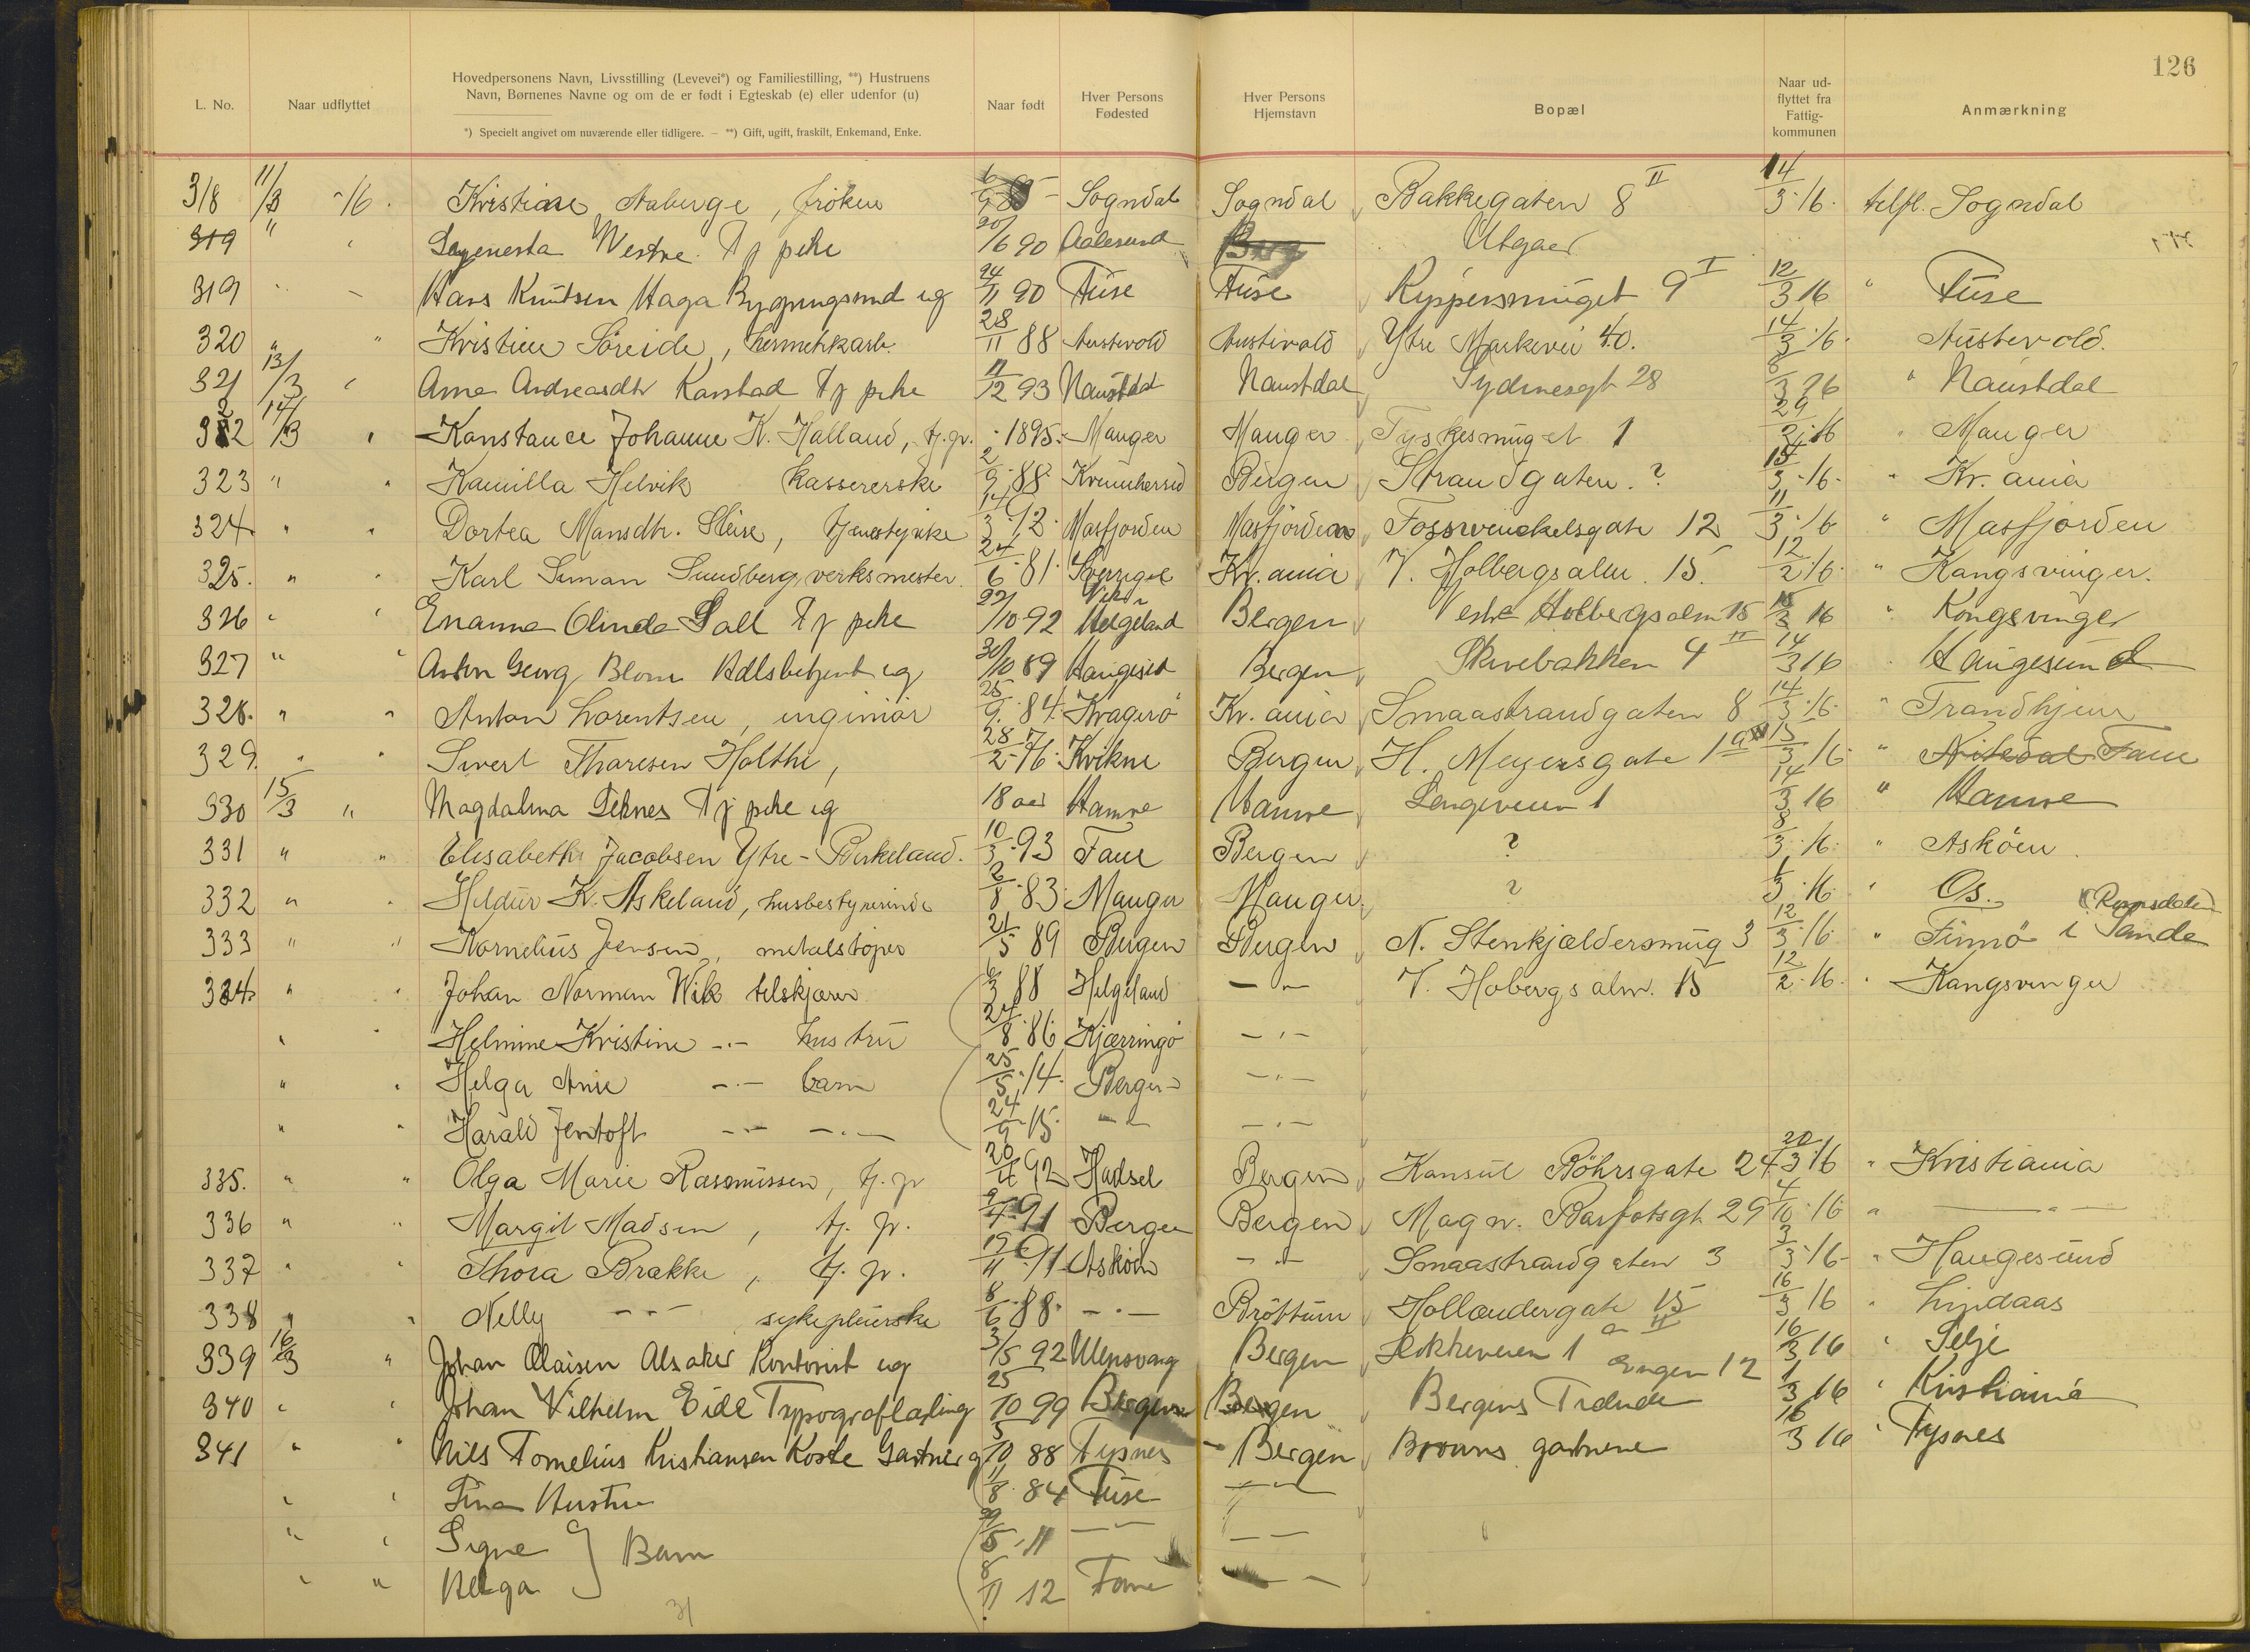 126
L. No. Naar udflyttet Hovedpersonens Navn, Livsstilling (Levevei*) og Familiestilling, **) Hustruens Navn, Børnenes Navne og om de er født i Egteskab (e) eller udenfor (u) Naar født Hver Persons Fødested Hver Persons Hjemstavn Bopæl Naar ud-flyttet fra Fattig-kommunen Anmærkning
*) Specielt angivet om nuværende eller tidligere. — **) Gift, ugift, fraskilt, Enkemand, Enke.
318 11/3 -16. Kristiane Aaberge, frøken Sogndal Sogndal Bakkegaten 8 II 14/3-16. tilfl. Sogndal
319 " " Vestre Tj pike 20/6 90 Aalesund Berg Utgaar
319 " " Hans Knutsen Haga Bygningssnd ug 24/11 90 Fuse Fuse Kippersmuget 9 I 12/3 16 " Fuse
320 " " Kristine Søreide, hermetikarb. 28/11 88 Austevold Austevold Ytre Markevei 40. 14/3-16 Austevold.
321 13/3 " Anna Andreasdtr Karstad Tj pike 11/12 93 Naustdal Naustdal Sydnesgt 28 8/3 26 " Naustdal
322 14/3 " Konstance Johanne K. Halland, tj.p. 1895. Manger Manger Tyskesmuget 1 29/2-16 " Manger
323 " " Kamilla Helvik kassererske 2/9 88 Kvinnhersed Bergen Strandgaten. ? 14/3-16. " Kr.ania
324. " " Dortea Mansdtr. Sleire, tjenestepike 14/3-92. Masfjorden Masfjorden Fosswinckelsgate 12 11/3-16 " Masfjorden
325. " " Karl Sundberg, verksmester. 24/6-81. Sverrige Kr.ania V. Holbergsalm. 15. 12/2 16. " Kongsvinger.
326 " " Olinda Sall Tj pike 22/10 92 Helgeland Bergen Vestre Holbergsalm 15 15/3 16 " Kongsvinger
327 " " Anton Georg Blom Hdlsbetjent ug 30/10 89 Haugesd Bergen Skivebakken 4 II 14/3 16 " Haugesund
328. " " Anton Lorentsen, ingeniør 25/9.84. Kragerø Kr.ania Smaastrandgaten 8 14/3-16. " Trondhjem
329. " " Sivert Tharesen Holthe, 28/2-76. Kvikne Bergen H. Meyersgate 1 a 15/3 16. " Nitedal Fane
330 15/3 " Magdalena Teknes Tj pike ug 18 aar Hamre Hamre Lengeveien 1 14/3 16 " Hamre
331 " " Elisabeth Jacobsen Ytre-Birkeland. 10/3-93 Fane Bergen ? 8/3.16. " Askøen.
332 " " Heldur K. Askeland, husbestyrerinde 2/8-83. Manger Manger ? 1/3-16. " Os.
333 " " Kornelius Jensen, metalstøper 21/5 89 Bergen Bergen N. Stenkjældersmug 3 12/3-16 " Finnø i Sande (Romsdalen)
334. " " Johan Norman Wik tilskjærer 6/3 88 Helgeland — " — V. Hobergsalm. 15 12/2-16. " Kongsvinger
" " Helmine Kristine -"- hustru 24/8.86 Kjærringø — " —
" " Helga Anie -"- barn 25/5.14. Bergen — " —
" " Harald Jentoft -"- -"- 24/9-15. -"- — " —
335. " " Olga Marie Rasmussen, tj.p 20/11 92 Hadsel Bergen Konsul Bøhrsgate 24 20/3-16 " Kristiania
336 " " Margit Madsen, tj.p. 9/4-91 Bergen Bergen Magn. Barfotsgt. 29 4/10-16 " — " —
337 " " Thora Brakke, tj.p. 19/11-91 Askøen — " — Smaastrandgaten 3 3/3-16- " Haugesund
338 " " Nelly -"- sykepleierske 8/6-88. -"- Brøttum Hollændergate 15 16/3 16 " Lindaas
339 16/3 " Johan Olaisen Alsaker Kontorist ug 3/5 92 Ullensvang Bergen Lekkeveien 1 a II 16/3 16 " Selje
340 " " Johan Vilhelm Eide Typograflærling 25/10 99 Bergen Bergen Bergens Tidende Engen 12 1/3 16 " Kristiania
341 " " Nils Tomelius Kristiansen Koste Gartner g 5/10 88 Tysnes Bergen Brouns gartneri 16/3 16 " Tysnes
" " Tina Hustru 11/8 84 Fuse — " —
" " Signe } Barn 29/5-11 — " — — " —
" " Helga 8/11 12 Fane — " —
31